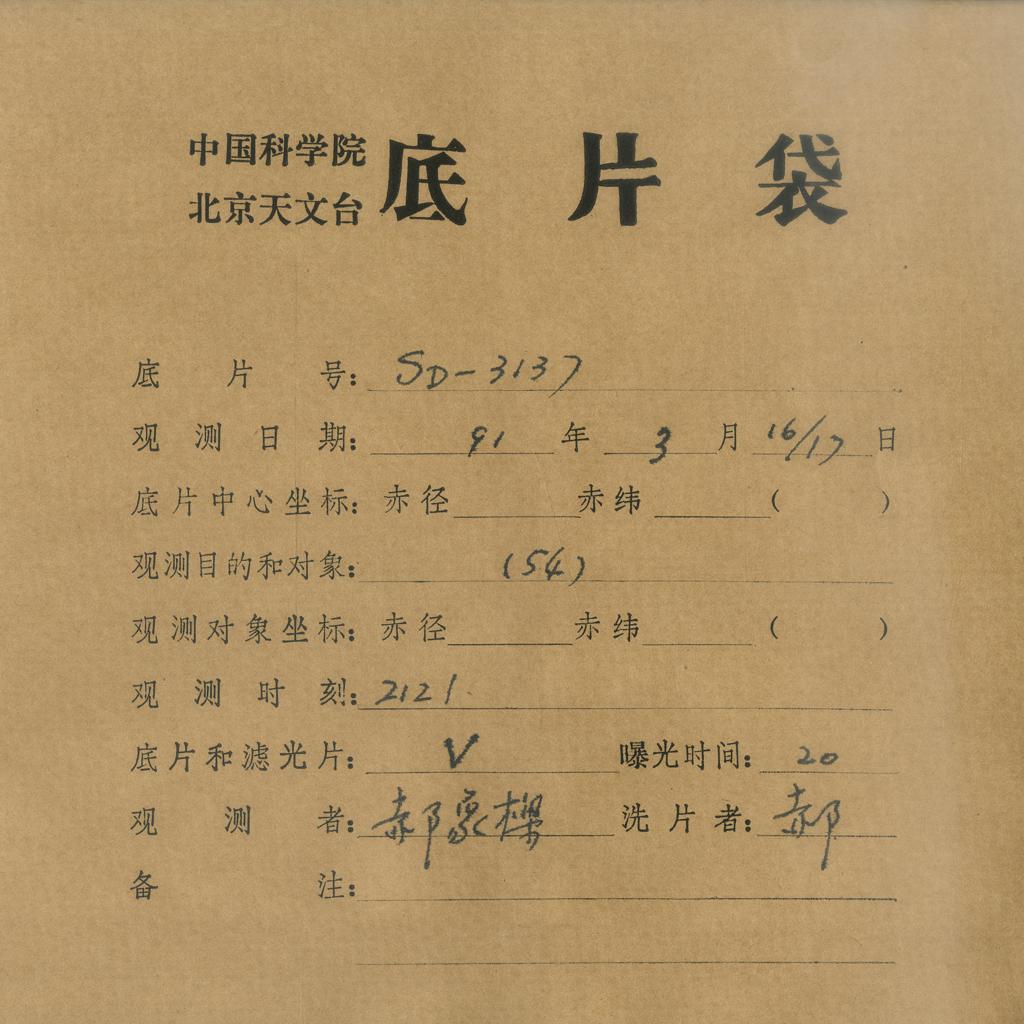 中国科学院
北京天文台
底片袋
底片号: SD-3137
观测日期: 91年3月16/17日
底片中心坐标: 赤径 赤纬 ( )
观测目的和对象: (54)
观测对象坐标: 赤径 赤纬 ( )
观测时刻: 2121
底片和滤光片: V 曝光时间: 20
观测者: 郝象樑 洗片者: 郝
备注: